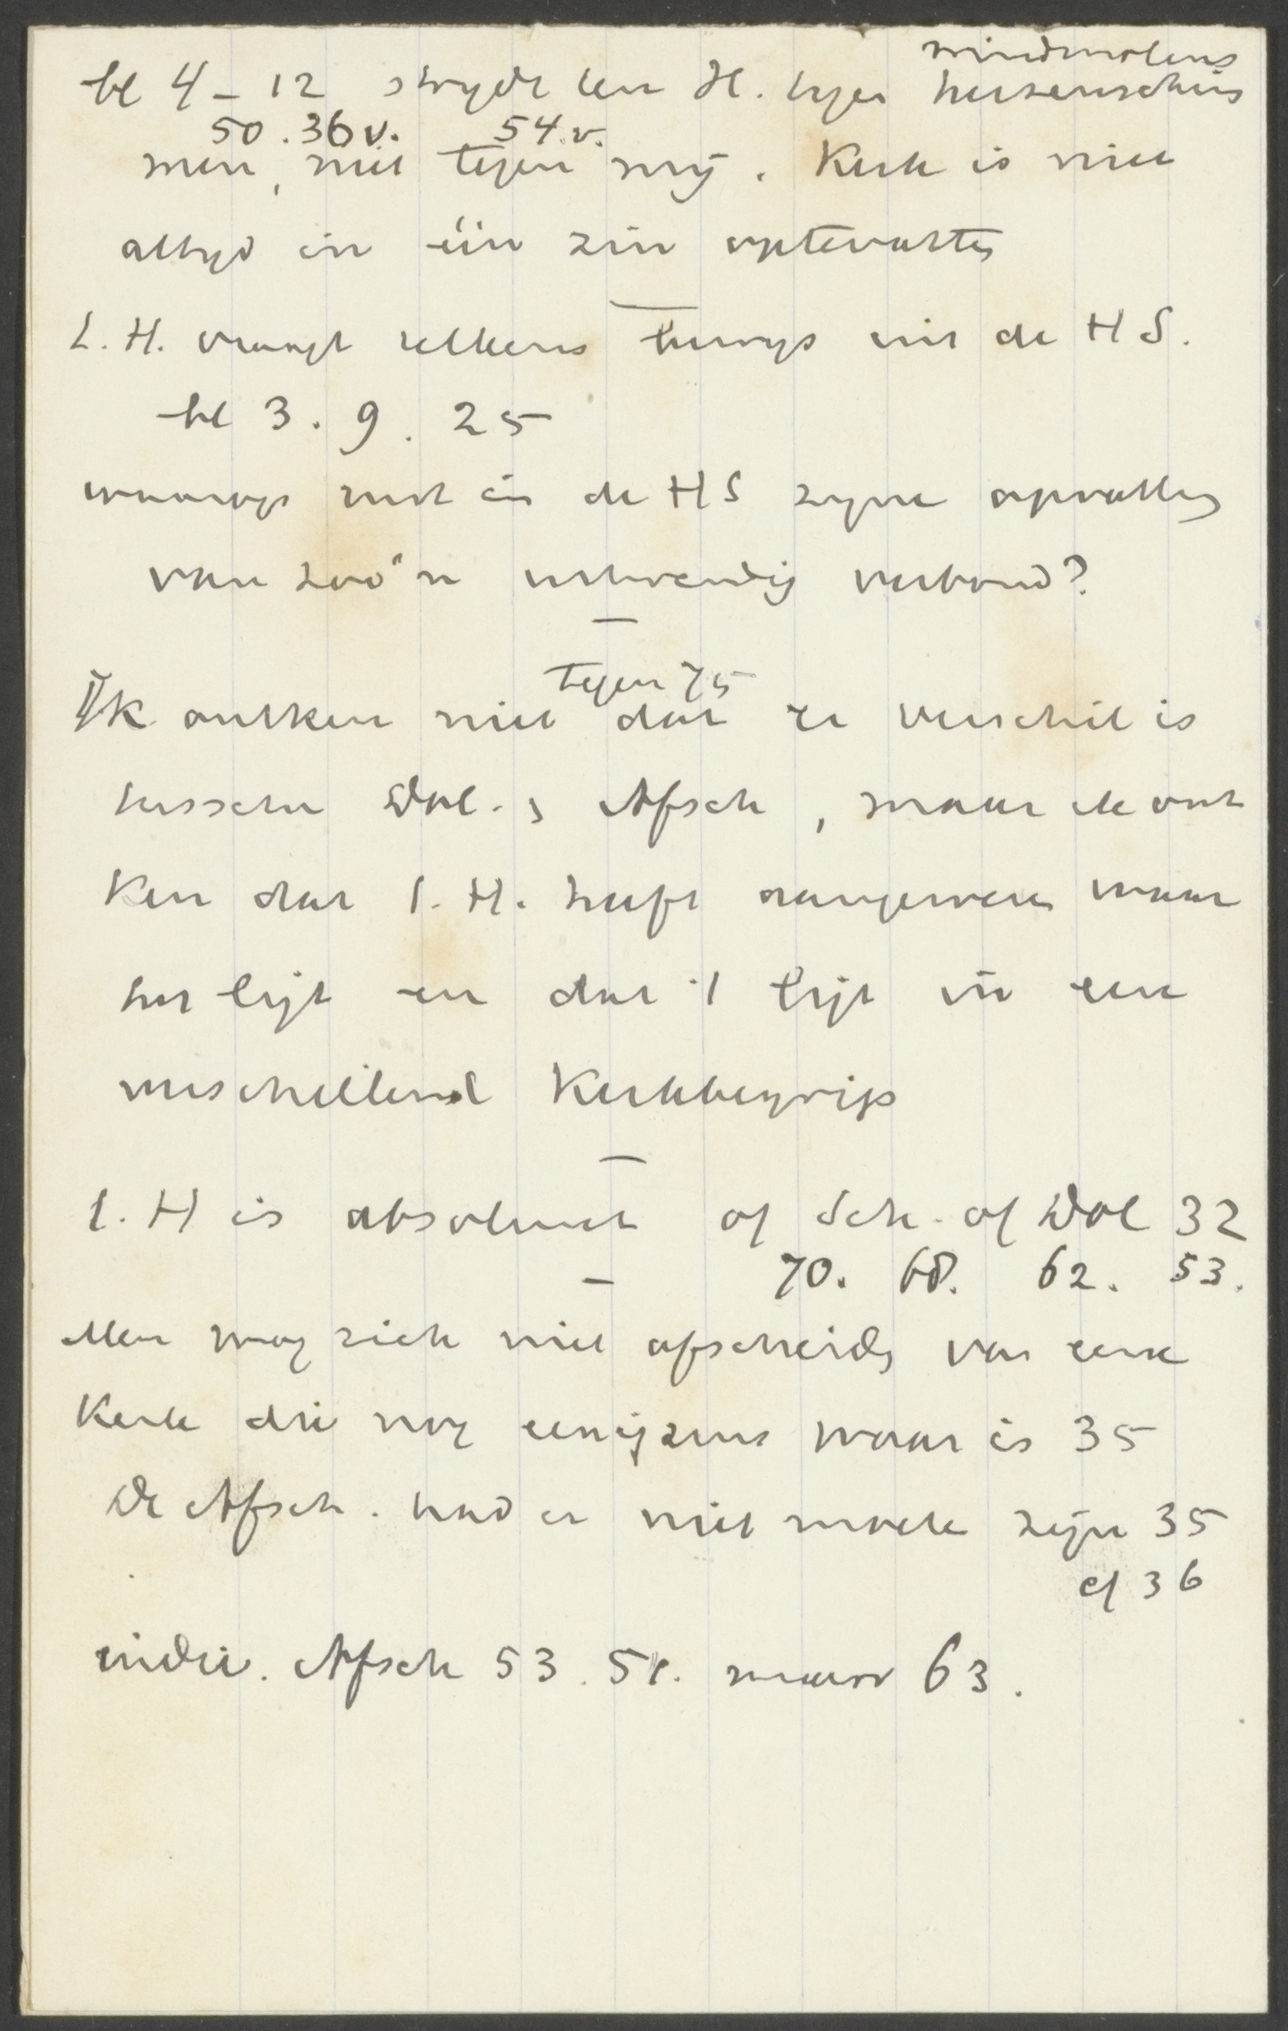 windmolens
bl 4 – 12 strydt len H. tegen hersenschim
50 . 36 v. 54 v.
men, niet tegen mij. Kerk is niet
altijd in één zin optevatten
L. H. vraagt telkens bewijs uit de H S.
bl 3 . 9 . 25
waarop rust in de HS zijne opvatting
van zoo'n uitwendig verbond?
tegen 75
Ik ontken niet dat er verschil is
tusschen Dol. & Afsch , maar ik ont
ken dat l. H. heeft aangewezen waar
het ligt en dat 't ligt in een
verschillend Kerkbegrip
l. H is absoluut of Sch. of Dol 32
70. 68. 62. 53.
Men mag zich niet afscheiden van eene
Kerk die nog eenigzins waar is 35
De Afsch. had er niet moeten zijn 35
cf 36
Afsch 53. maar 63.